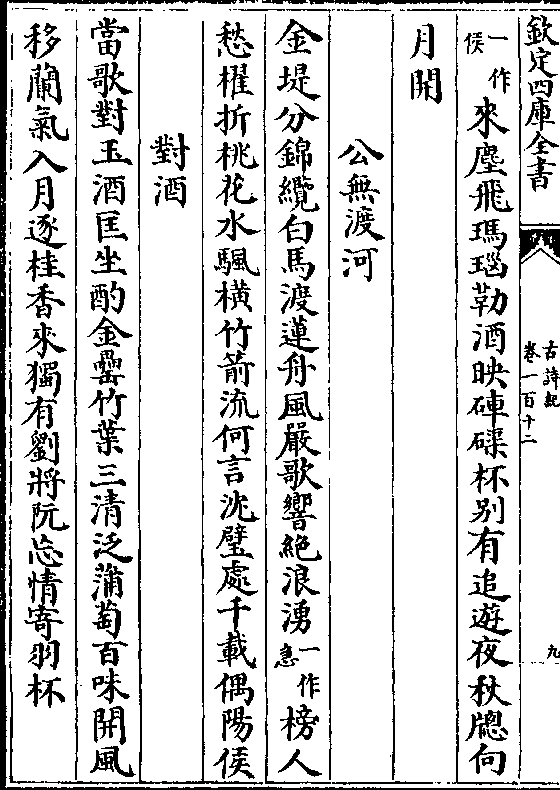 欽定四庫全書
古詩紀
卷一百十二
九
一作侯來塵飛瑪瑙勒酒映硨磲杯别有追遊夜秋牕向
月開
公無渡河
金堤分錦纜白馬渡蓮舟風嚴歌響絶浪湧一作急榜人
愁櫂折桃花水颿橫竹箭流何言沈璧處千載偶陽侯
對酒
當歌對玉酒匡坐酌金罍竹葉三清泛蒲萄百味開風
移蘭氣入月逐桂香來獨有劉將阮忘情寄羽杯